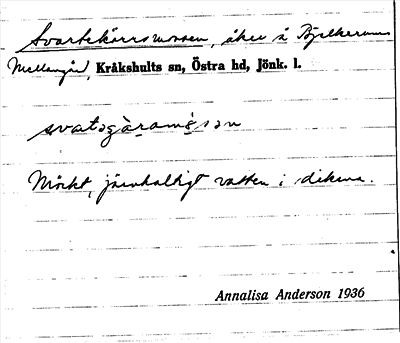 Svartekärrsmossen, åker å Bjälkerums
Mellangård, Kråkshults sn, Östra hd, Jönk. l.
svatəgàramòsən
Mörkt, järnhaltigt vatten i dikena.
Annalisa Anderson 1936